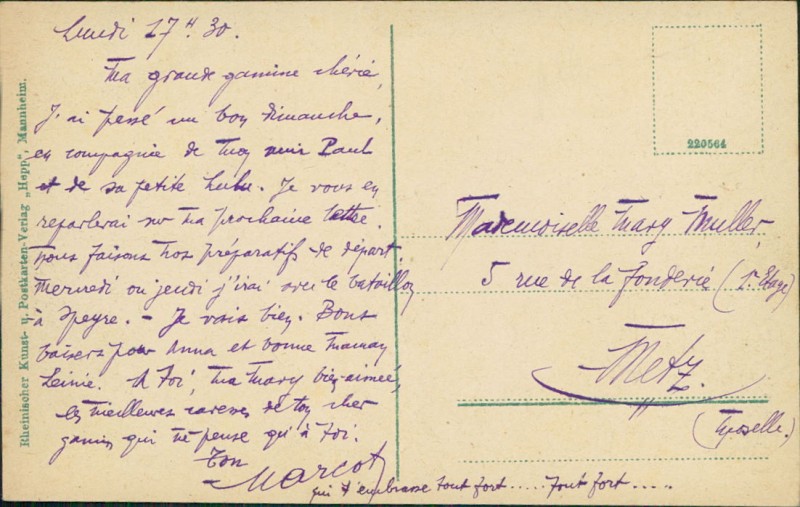 Lundi 17 H 30.
Ma grande gamine chérie,
J'ai passé un bon dimanche,
en compagnie de mon ami Paul
et de sa petite Lulu. Je vous en
reparlerai sur ma prochaine lettre.
Nous faisons nos préparatifs de départ.
Mercredi ou jeudi j'irai avec le bataillon
à Speyre. - Je vais bien. Bons
baisers pour Anna et bonne maman
Leinie. A toi, ma Mary bien aimée,
les meilleures caresses de ton cher
gamin qui ne pense qu'à toi.
Ton
Marcot
qui t'embrasse tout fort ..... tout fort .....
Rheinischer Kunst- u. Postkarten-Verlag „Hepp", Mannheim.
220564
Mademoiselle Mary Muller,
5 rue de la fonderie (1r Etage)
Metz.
(Moselle.)